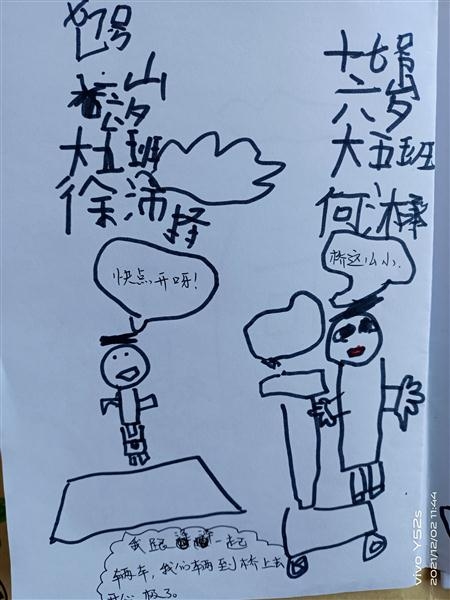 七号
六岁
大五班
徐沛择
十七号
六岁
大五班
快点开呀！
桥这么小.
我跟 一起
辆车，我们辆到桥上去
开心极了。
vivo Y52s
2021/12/02 11:44